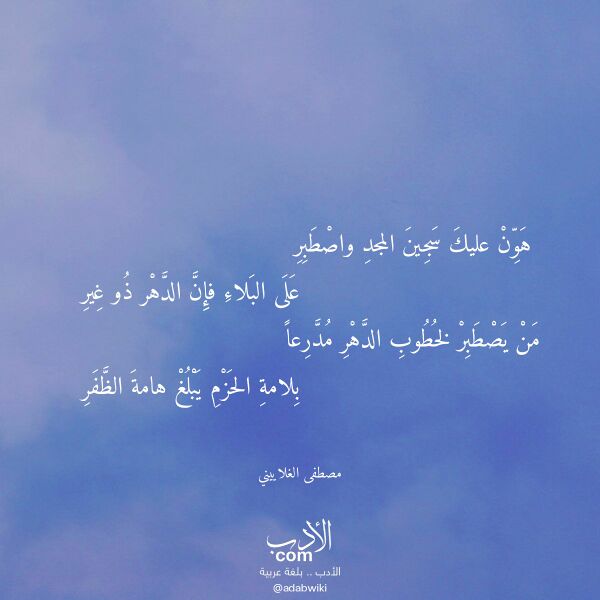 هَوِّنْ عليكَ سَجِينَ المجدِ واصْطَبِرِ
عَلَى البَلاءِ فإِنَّ الدَّهْر ذُو غِيَرِ
مَنْ يَصْطَبِرْ لخُطُوبِ الدَّهْرِ مُدَّرِعاً
بِلامةِ الحَزْمِ يَبْلُغْ هامةَ الظَّفَرِ
مصطفى الغلاييني
الأدب
com
الأدب .. بلغة عربية
@adabwiki